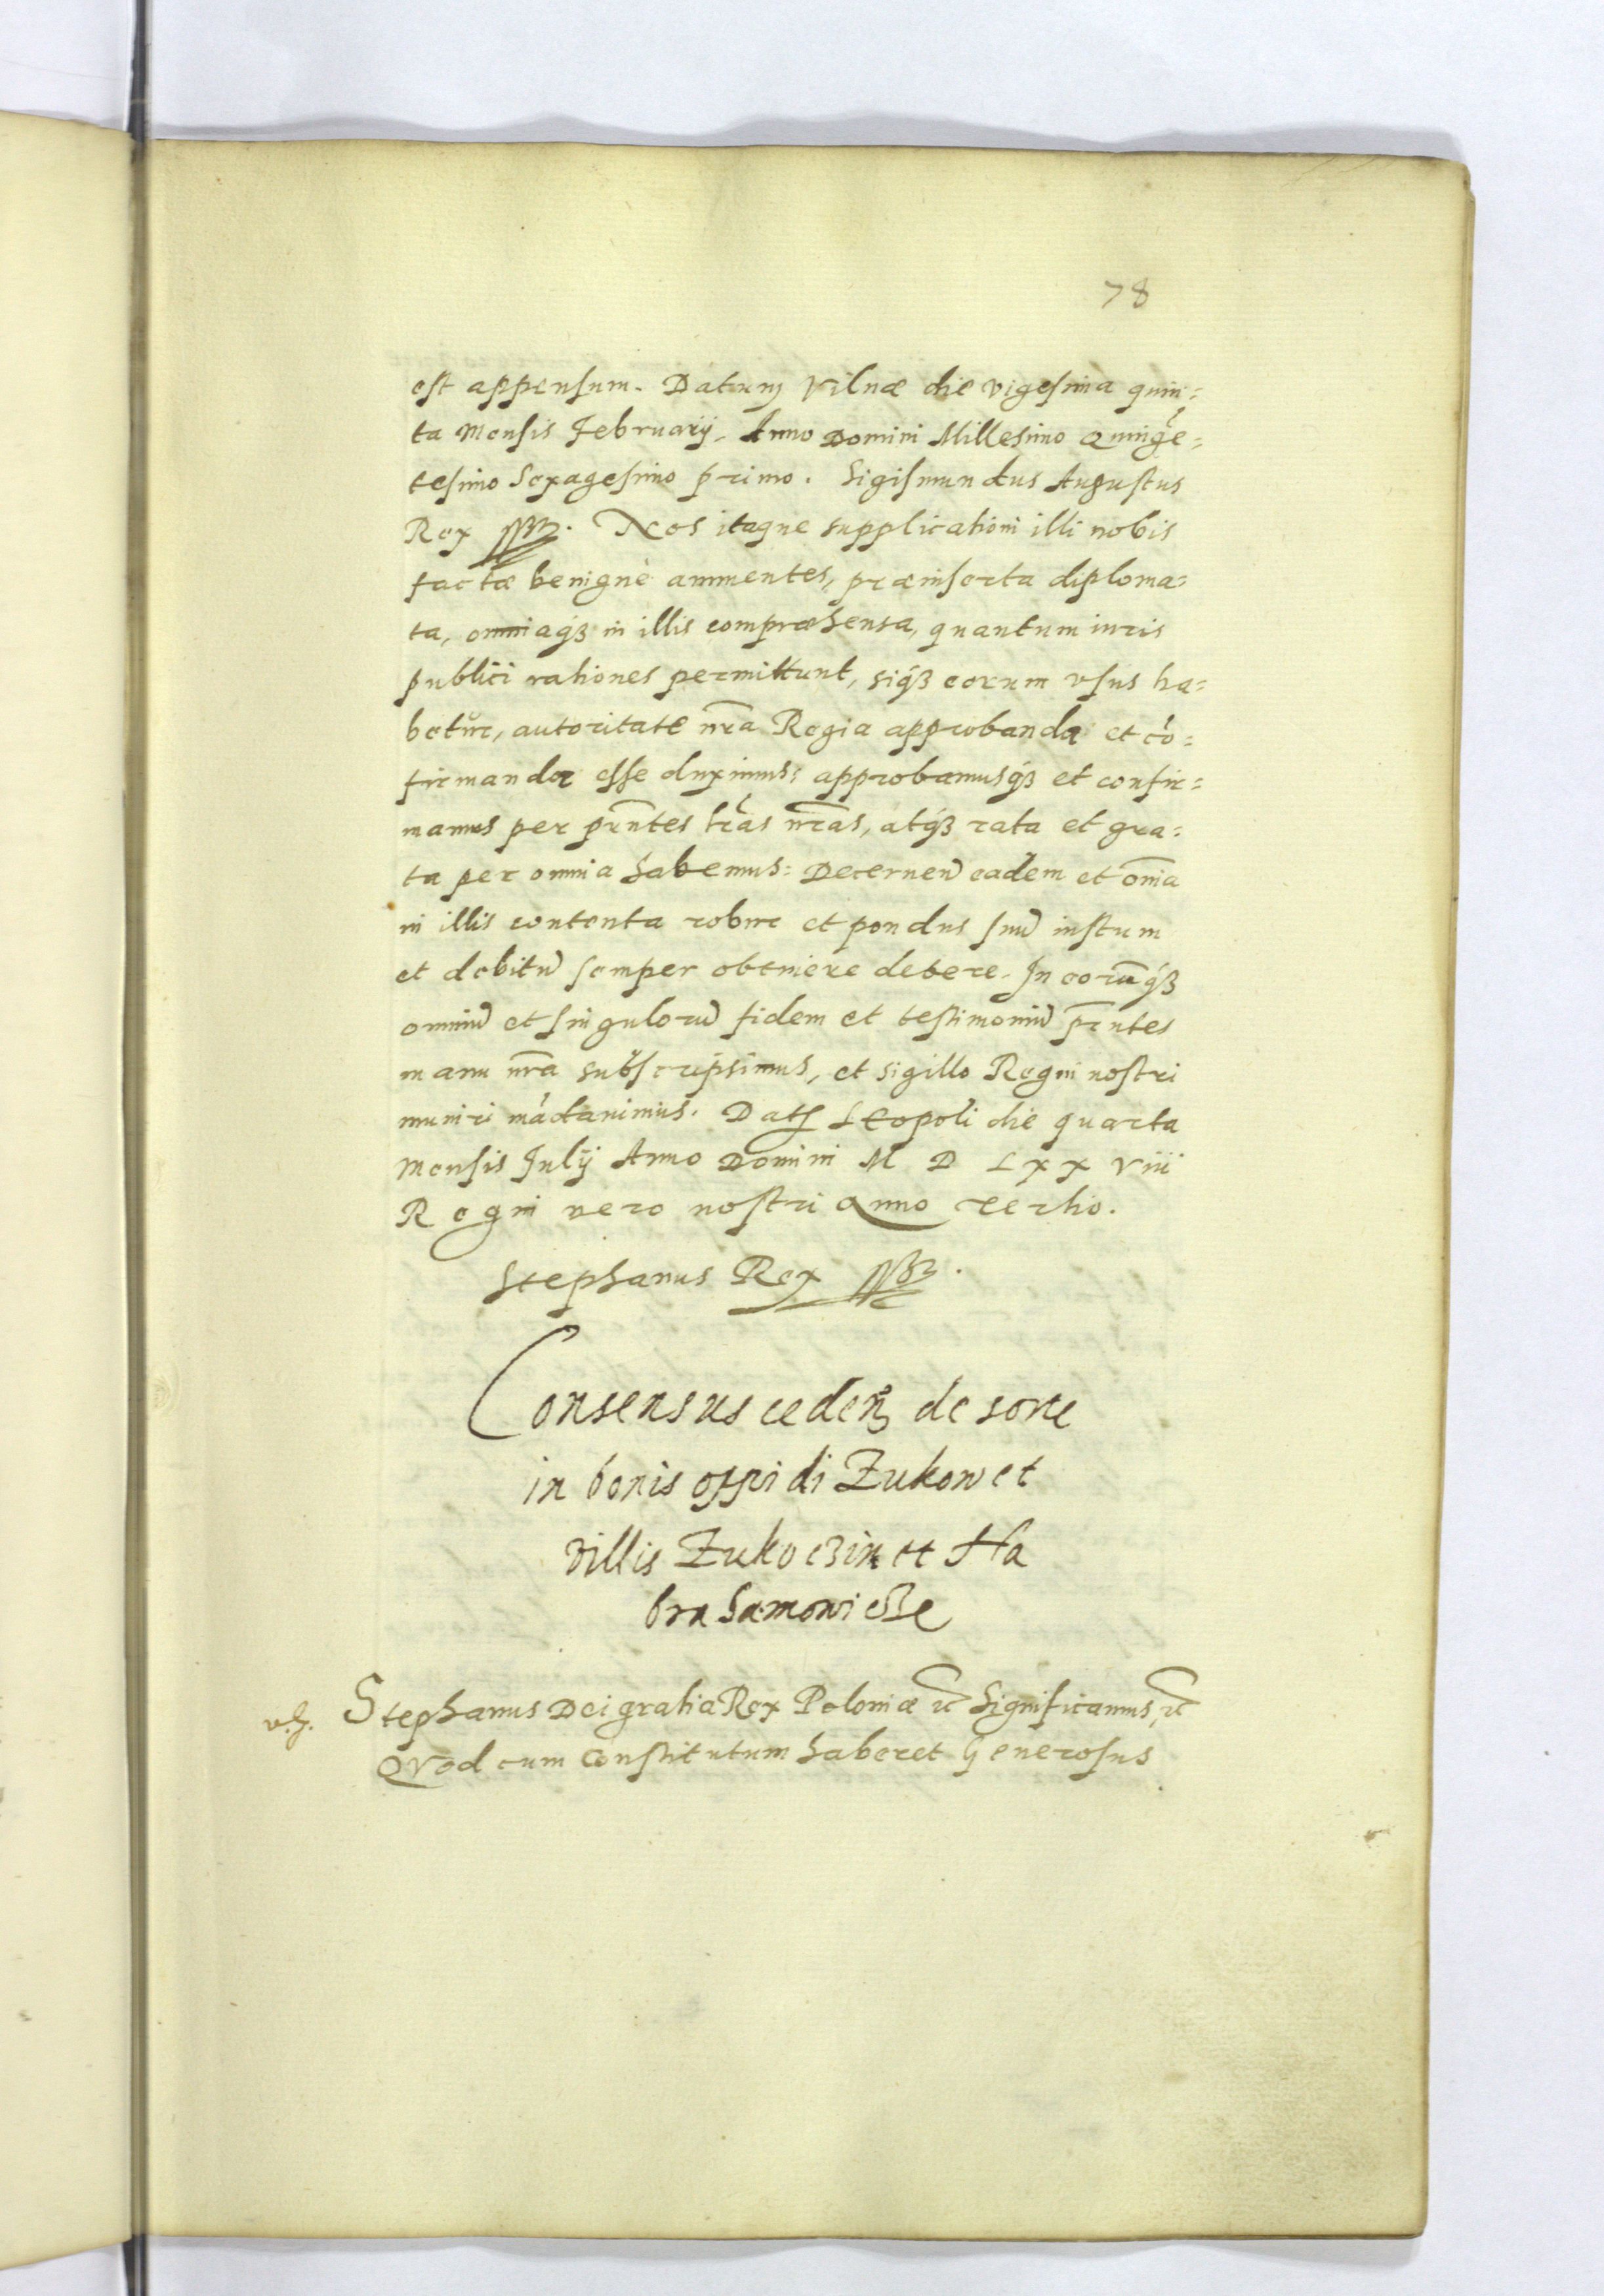 78
est appensum. Datum Vilnæ die vigesima quin=
ta Mensis Februarij. Anno Domini Millesimo Quingē=
tesimo Sexagesimo primo. Sigismundus Augustus
Rex. Nos itaque supplicationi illi nobis
factæ benignè annuentes, præinserta diploma=
ta, omniaqꝫ in illis compræhensa, quantum iuris
publici rationes permittunt, siqꝫ eorum vsus ha=
betur, autoritate nr̃a Regia approbanda et cō=
firmanda esse duximus: approbamusqꝫ et confir=
mamus per pr̃ntes lr̃as nr̃as, atqꝫ rata et gra=
ta per omnia habemus: Decernen̄ eadem et om̃ia
in illis contenta robur et pondus suū iustum
et debitū semper obtinere debere. In eorūqꝫ
omniū et singulorū fidem et testimoniū pr̃ntes
manu nr̃a subscripsimus, et sigillo Regni nostri
muniri mādauimus. Datȝ Leopoli die quarta
Mensis Julij Anno Domini M D L x x Viii
Regni vero nostri Anno tertio.
Stephanus Rex.
Consensus cedenꝫ de sorte
in bonis oppidi Zukow et
villis Zukoczin et Ha
brahamowicze
v.
Stephanus Dei gratia Rex Poloniæ ꝛc Significamus, ꝛc
Quod cum constitutum haberet Generosus